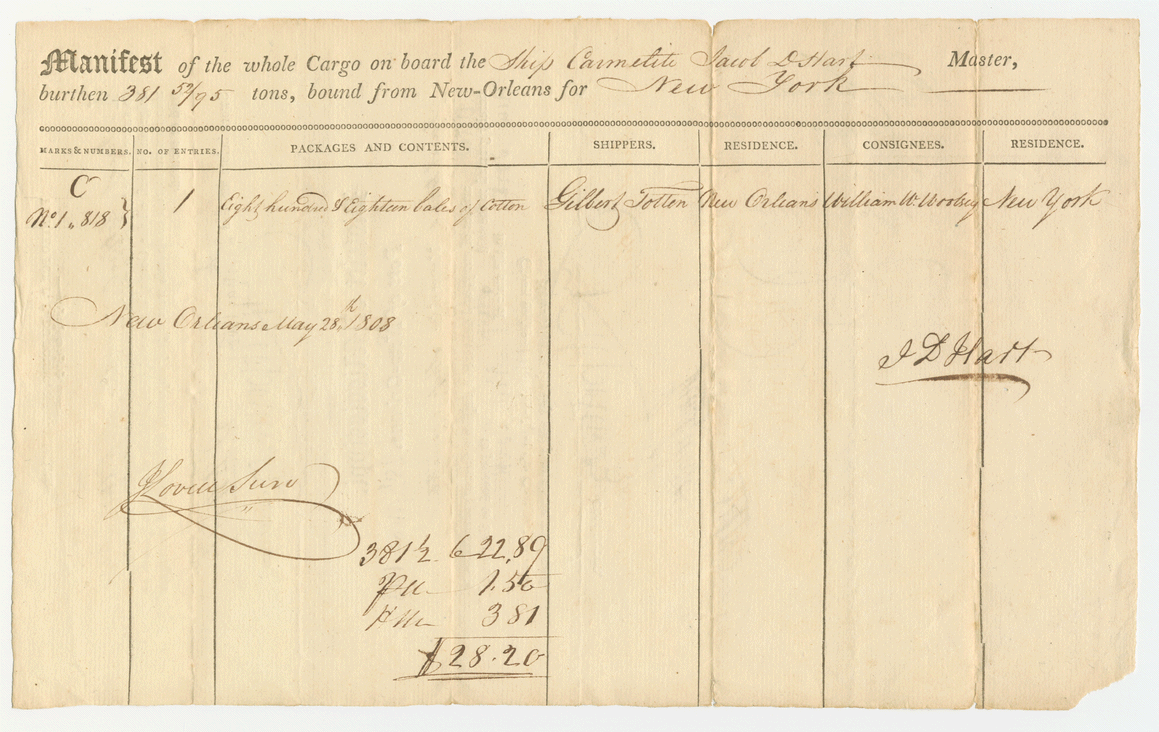 Manifest of the whole Cargo on board the Ship Carmelite Jacob D Hart Master,
burthen 381 52/95 tons, bound from New-Orleans for New York
MARKS & NUMBERS. NO. OF ENTRIES. PACKAGES AND CONTENTS. SHIPPERS. RESIDENCE. CONSIGNEES. RESIDENCE.
C
No. 1 „ 818 } 1 Eight hundred & Eighteen bales of Cotton Gilbert Totten New Orleans William W. Woolsey New York
New Orleans May 28th 1808
J D Hart
Lovell Surv
381½ 6 22,89
1.50
381
$28.20